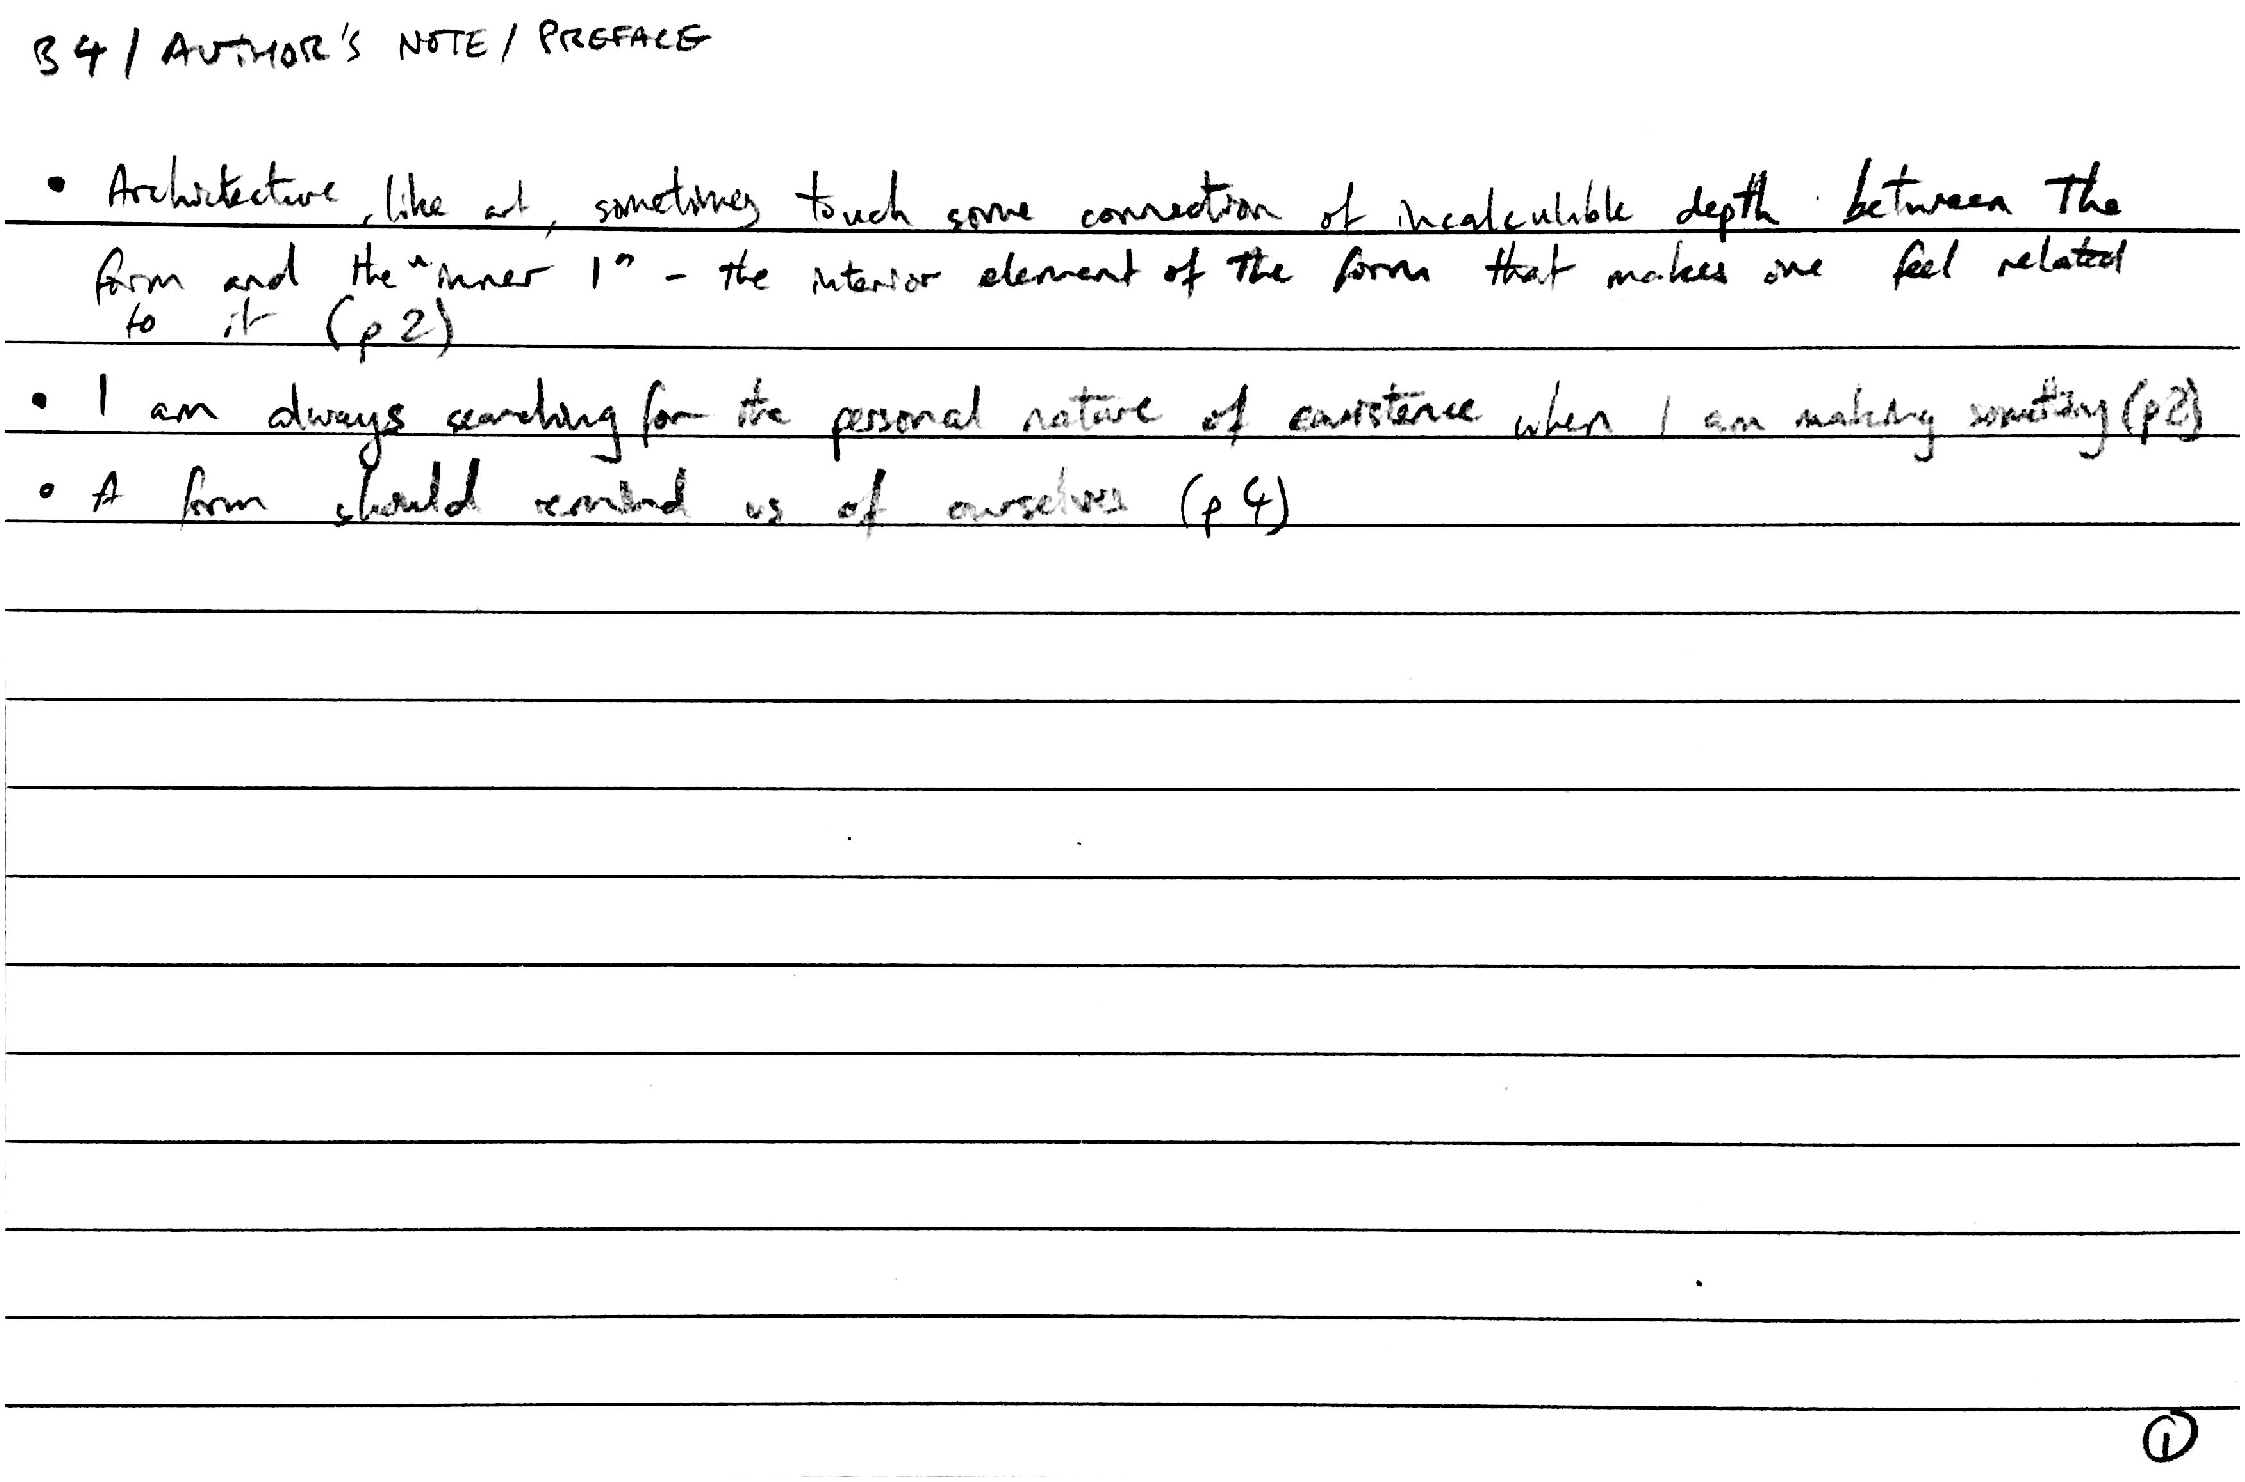 B4 / AUTHOR'S NOTE / PREFACE
• Architecture, like art, sometimes touch some connection of incalculible depth between the
form and the "inner I" - the interior element of the form that makes one feel related
to it (p 2)
• I am always searching for the personal nature of existence when I am making something (p2)
• A form should remind us of ourselves (p 4)
1